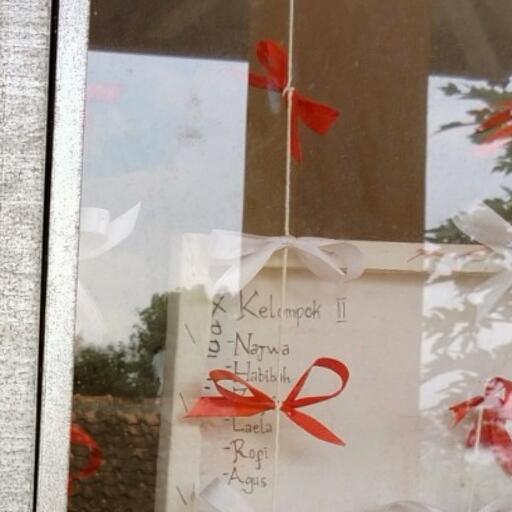 Kelompok II
-Najwa
-Habibih
-Laela
-Rofi
-Agus